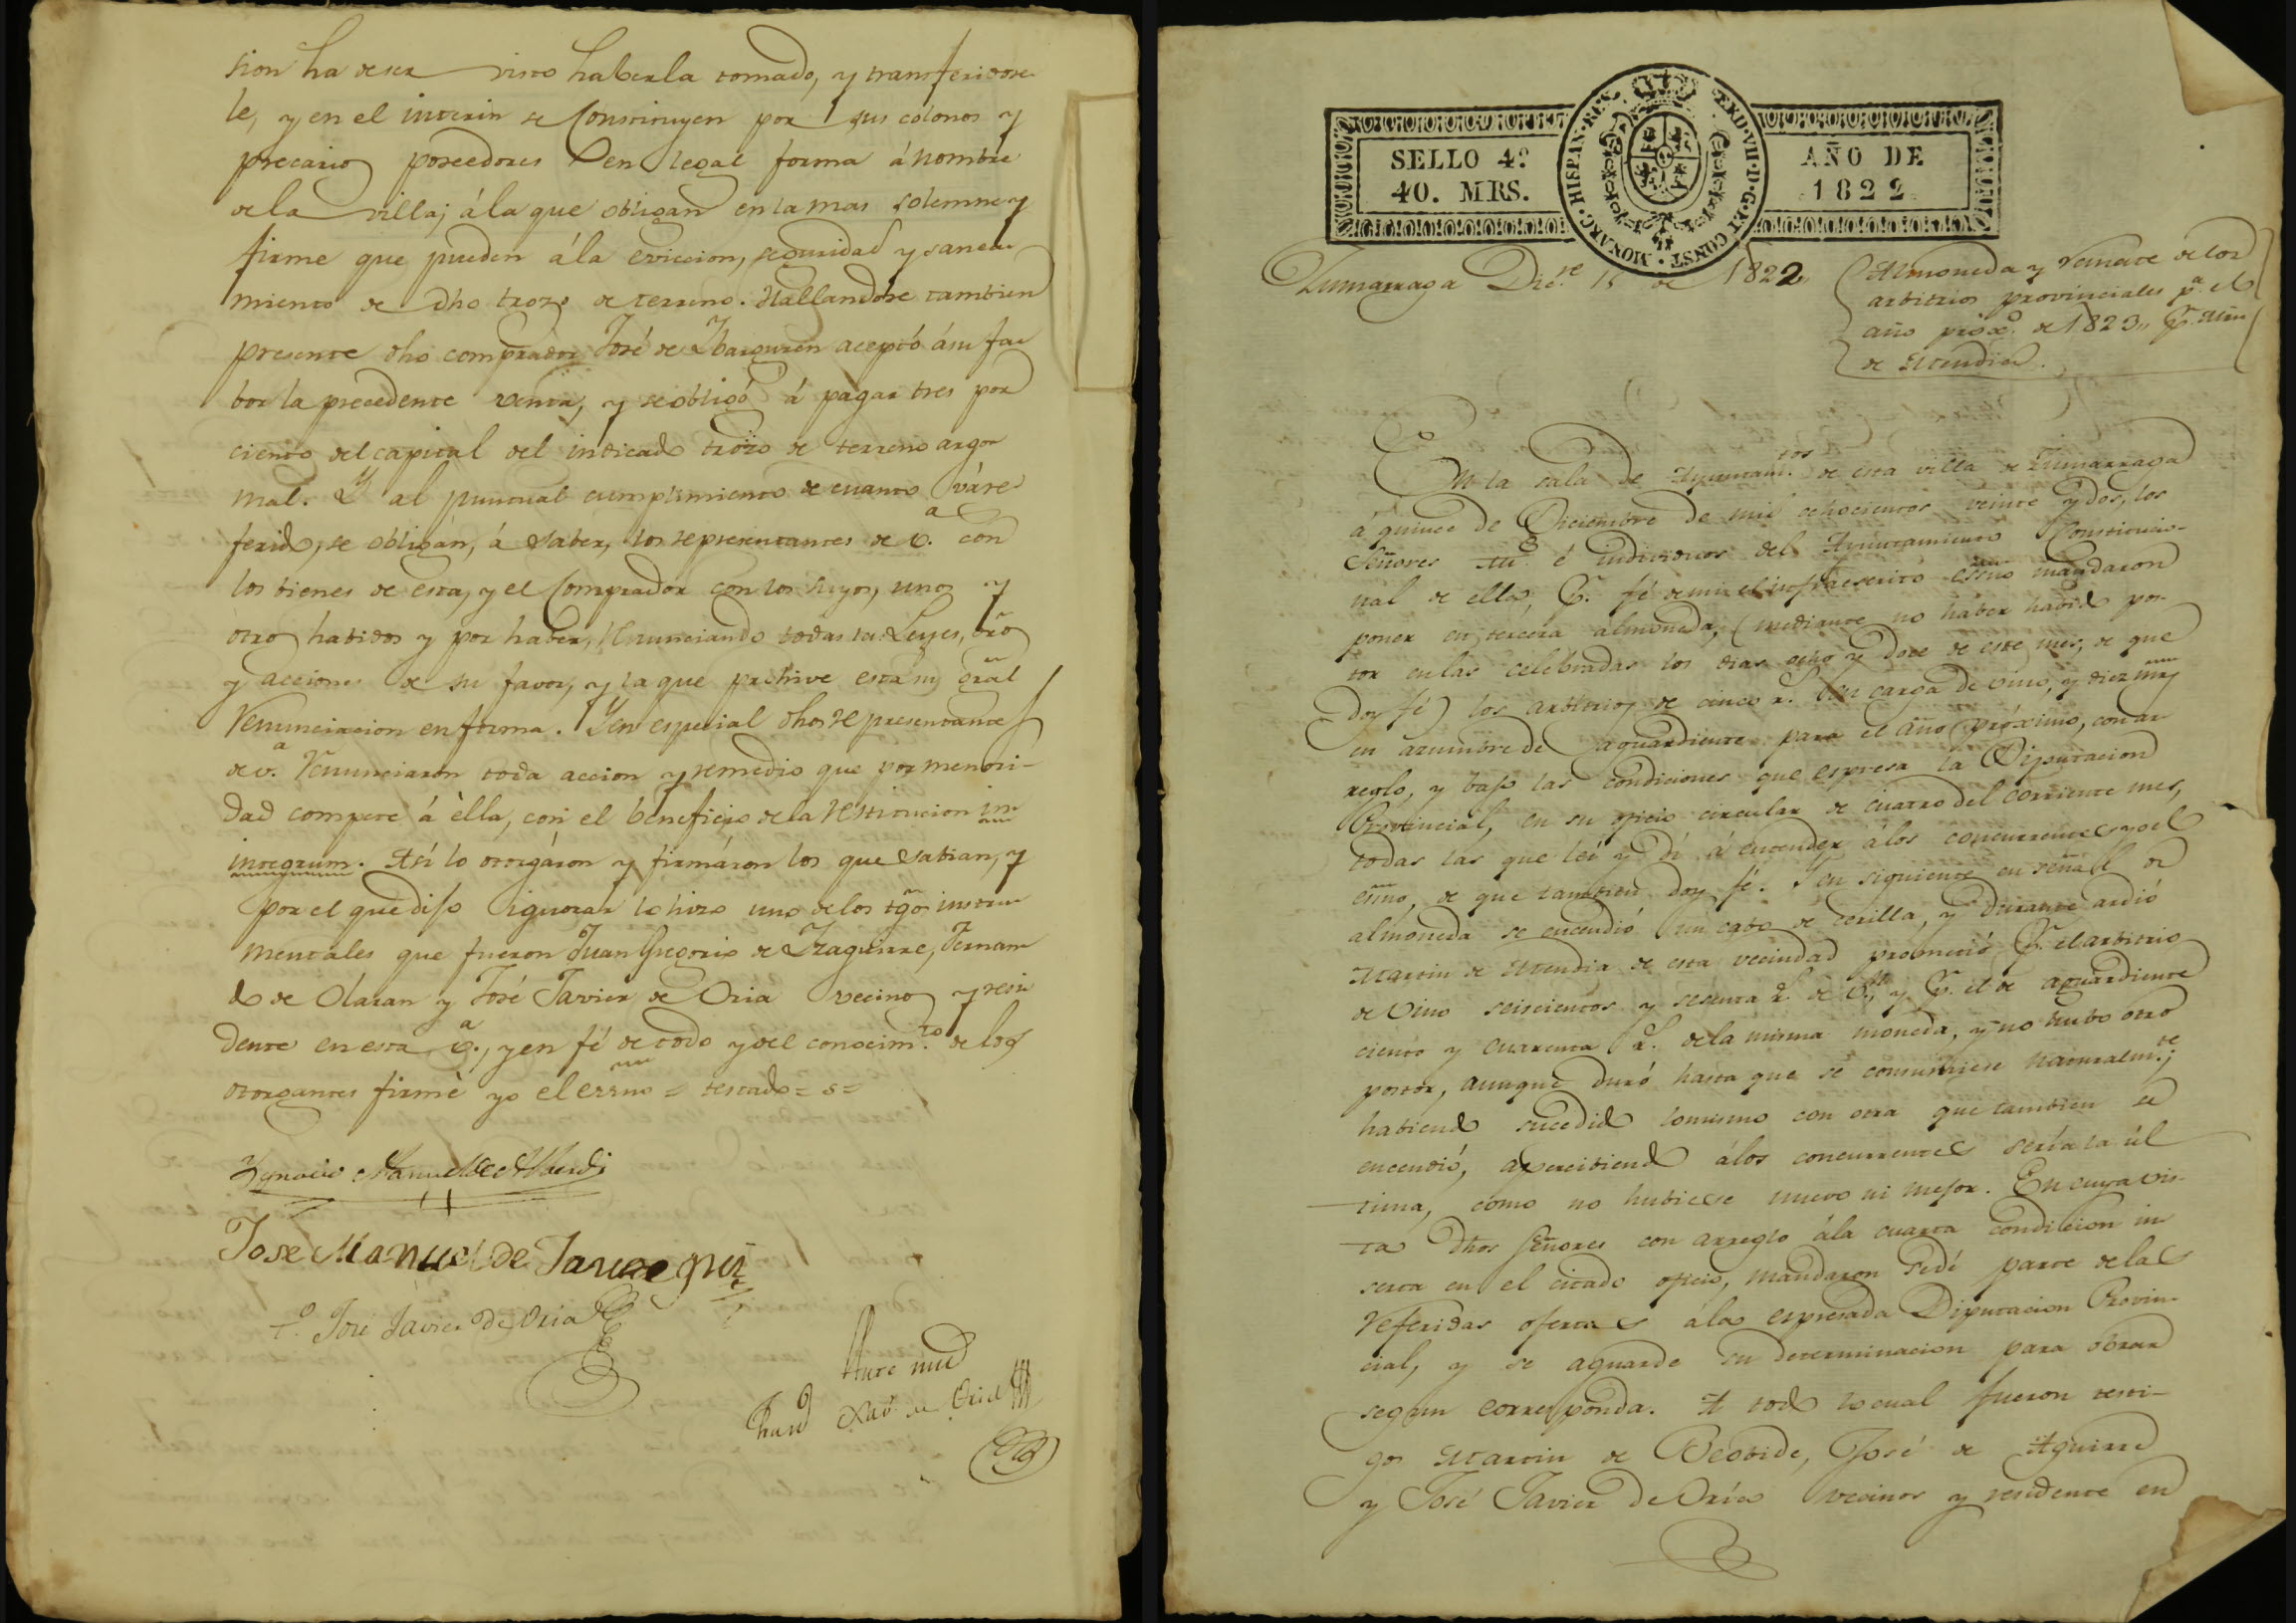 sion ha de ser visto haberla tomado, y transferidose-
le, y en el interin se Constituyen por sus colonos y
precarios poseedores en legal forma á nombre
de la villa; á la que obligan en la mas solemne y
firme que pueden á la eviccion, seguridad y sanea-
miento de dho trozo de terreno. Hallandose tambien
presente dho comprador José de Ybarguren aceptó á su fa-
bor la precedente venta, y se obligó á pagar tres por
ciento del capital del indicado trozo de terreno argo-
mal. Y al puntual cumplimiento de cuanto vá re-
ferido, se obligan, á saber, los representantes de v.ª con
los bienes de esta, y el Comprador con los suyos, unos y
otro habidos y por haber, renunciando todas las Leyes, dro
y acciones de su favor, y la que prohive esta ni gral
renunciacion en forma. Y en especial dhos representantes
de v.ª renunciaron toda accion y remedio que por menori-
dad compete á èlla, con el beneficio de la restitucion in
integrum. Así lo otorgáron y firmáron los que sabian, y
por el que dijo ignorar lo hizo uno de los tgos instru-
mentales que fueron Juan Gregorio de Yzaguirre, Fernan-
do de Olaran y José Javier de Oria vecinos y resi-
dente en esta v.ª, y en fé de todo y del conocim.to de los
otorgantes firmè yo el essno = testado = s =
Ygnacio Manuel de Alberdi
Jose Manuel de Jauregui
t.º José Javier de Oria
Ante mi
Fran.co Xav.r de Oria
SELLO 4º
40. MRS.
AÑO DE
1822
FERD·VII·D·G·ET CONST·MONARC·HISPAN·REX
Zumarraga Dic.re 15 de 1822
Almoneda y remate de los
arbitrios provinciales p.ª el
año prox.º de 1823,, P. Mrn
de Mendia.
En la sala de Ayuntam.tos de esta villa de Zumarraga
á quince de Diciembre de mil ochocientos veinte y dos, los
Señores é individuos del Ayuntamiento Constitucio-
nal de ella, P. fé de mi el infraescrito essno mandaron
poner en tercera almoneda, (mediante no haber habido pos-
tor en las celebradas los dias ocho y doce de este mes, de que
doy fé) los arbitrios de cinco r.s en carga de vino, y diez mrs
en azumbre de aguardiente para el año próximo, con ar-
reglo, y bajo las condiciones que espresa la Diputacion
Provincial, en su oficio circular de cuatro del corriente mes,
todas las que leí y dí á entender á los concurrentes yo el
essno, de que tambien doy fé. Y en siguiente en señal de
almoneda se encendió un cabo de cerilla, y durante ardió
Martin de Mendia de esta vecindad prometió P. el arbitrio
de Vino seiscientos y sesenta r.s de v.n, y P. el de aguardiente
ciento y cuarenta r.s de la misma moneda, y no hubo otro
postor, aunque duró hasta que se consumiese naturalm.te;
habiendo sucedido lo mismo con otra que tambien se
encendió, apercibiendo á los concurrentes sería la úl-
tima, como no hubiese nuevo ni mejor. En cuya vis-
ta dhos Señores con arreglo á la cuarta condicion in-
serta en el citado oficio, mandaron se dé parte de las
referidas ofertas á la espresada Diputacion Provin-
cial, y se aguarde su determinacion para obrar
segun corresponda. A todo lo cual fueron testi-
gos Martin de Beobide, José de Aguirre
y José Javier de Oría vecinos y residente en